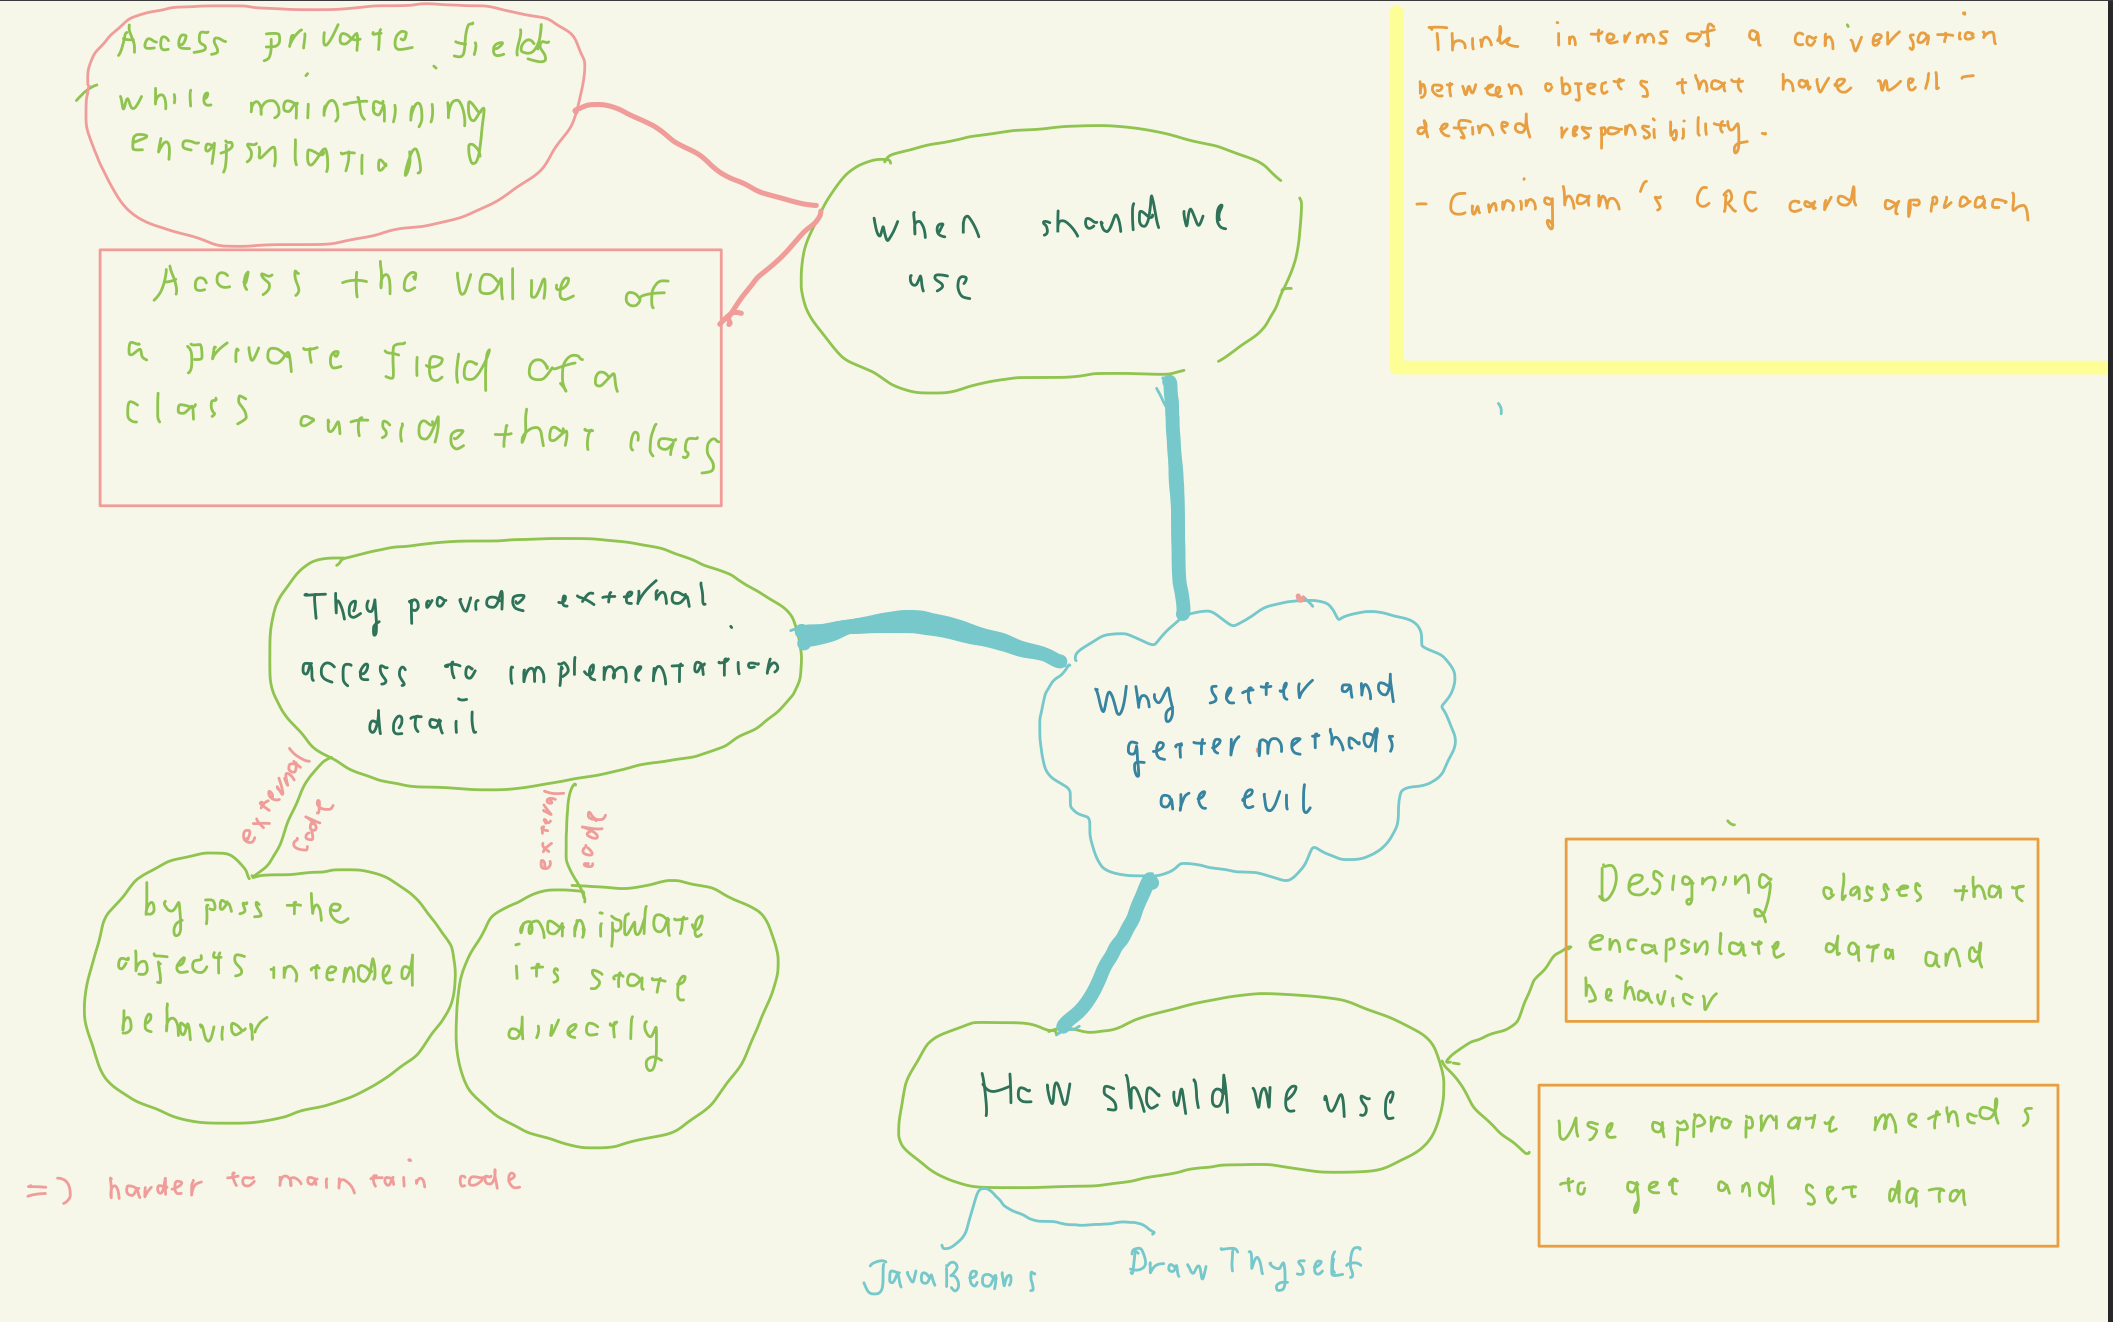 Access private fields
while maintaining
encapsulation
Access the value of
a private field of a
class outside that class
When should we
use
Think in terms of a conversation
between objects that have well-
defined responsibility.
- Cunningham's CRC card approach
They provide external
access to implementation
detail
external
code
external
code
by pass the
objects intended
behavior
manipulate
its state
directly
=) harder to maintain code
Why setter and
getter methods
are evil
How should we use
JavaBeans
Draw Thyself
Designing classes that
encapsulate data and
behavior
Use appropriate methods
to get and set data